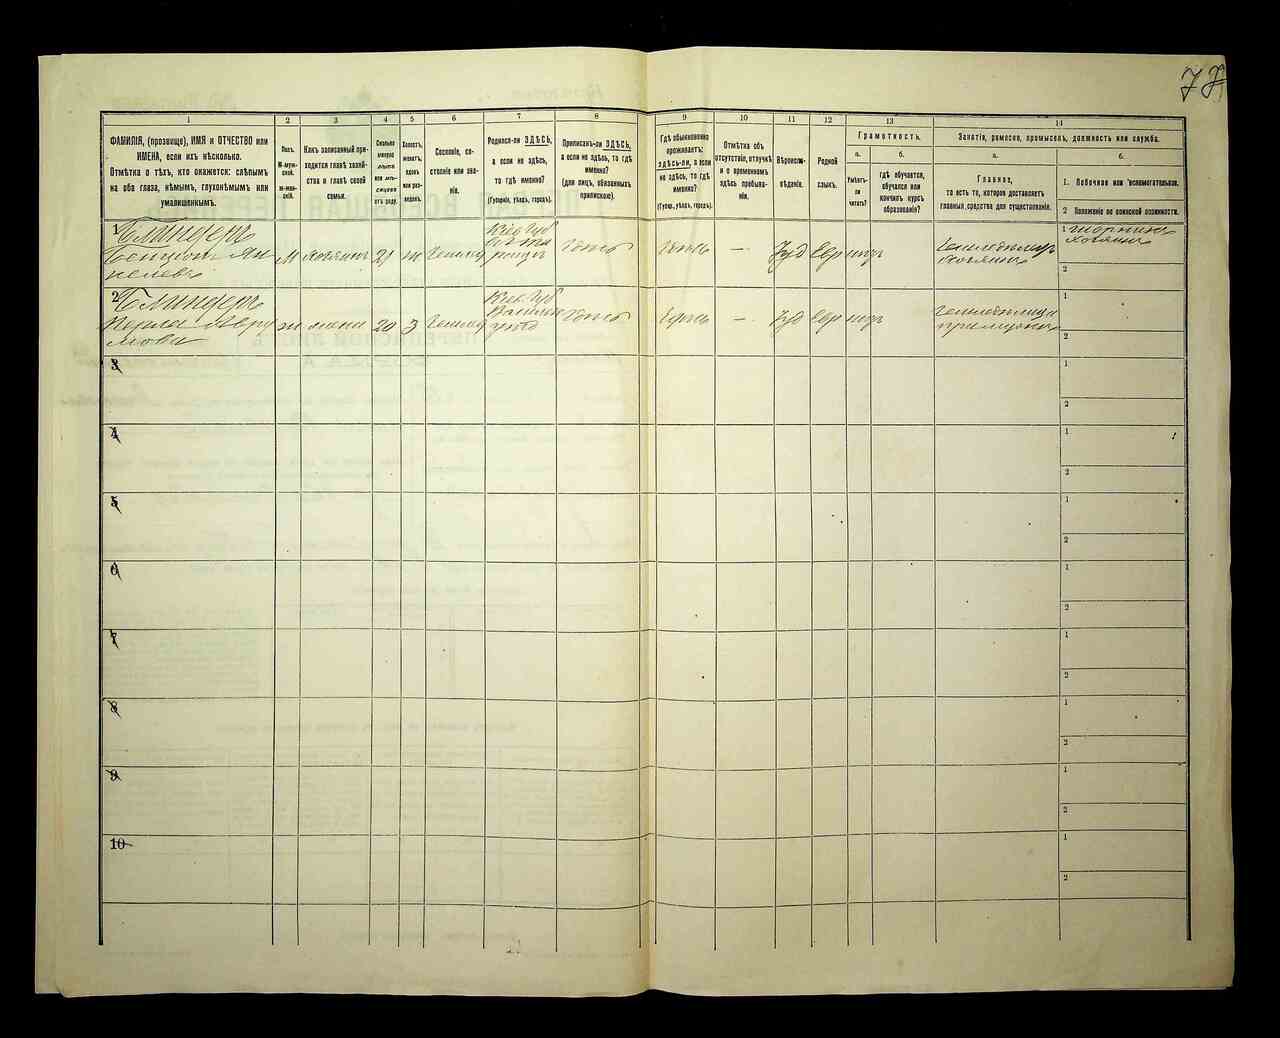 78
1
2
3
4
5
6
7
8
9
10
11
12
13
14
ФАМИЛІЯ, (прозвище), ИМЯ и ОТЧЕСТВО или
ИМЕНА, если ихъ нѣсколько.
Отмѣтка о тѣхъ, кто окажется: слѣпымъ
на оба глаза, нѣмымъ, глухонѣмымъ или
умалишеннымъ.
Полъ.
М-муж-
ской.
Ж-жен-
скій.
Какъ записанный при-
ходится главѣ хозяй-
ства и главѣ своей
семьи.
Сколько
минуло
лѣтъ
или мѣ-
сяцевъ
отъ роду.
Холостъ,
женатъ,
вдовъ
или раз-
веденъ.
Сословіе, со-
стояніе или зва-
ніе.
Родился-ли ЗДѢСЬ,
а если не здѣсь,
то гдѣ именно?
(Губернія, уѣздъ, городъ).
Приписанъ-ли ЗДѢСЬ,
а если не здѣсь, то гдѣ
именно?
(для лицъ, обязанныхъ
припискою).
Гдѣ обыкновенно
проживаетъ:
здѣсь-ли, а если
не здѣсь, то гдѣ
именно?
(Губерн., уѣздъ, городъ).
Отмѣтка объ
отсутствіи, отлучкѣ
и о временномъ
здѣсь пребыва-
ніи.
Вѣроиспо-
вѣданіе.
Родной
языкъ.
Грамотность.
а.
Умѣетъ-
ли
читать?
б.
Гдѣ обучается,
обучался или
кончилъ курсъ
образованія?
Занятіе, ремесло, промыселъ, должность или служба.
а.
Главное,
то есть то, которое доставляетъ
главныя средства для существованія.
б.
1. Побочное или вспомогательное.
2 Положеніе по воинской повинности.
1
Блиндеръ
Бенціонъ Ян
келевъ
М
хозяинъ
21
ж
Кіев Губ
здѣсь
здѣсь
—
Іуд
Евр
хозяинъ
1
хозяинъ
2
2
Блиндеръ
Перла Авру
мова
ж
жена
20
З
Кіев. Губ
здѣсь
здѣсь
—
Іуд
Евр
1
2
3
1
2
4
1
2
5
1
2
6
1
2
7
1
2
8
1
2
9
1
2
10
1
2